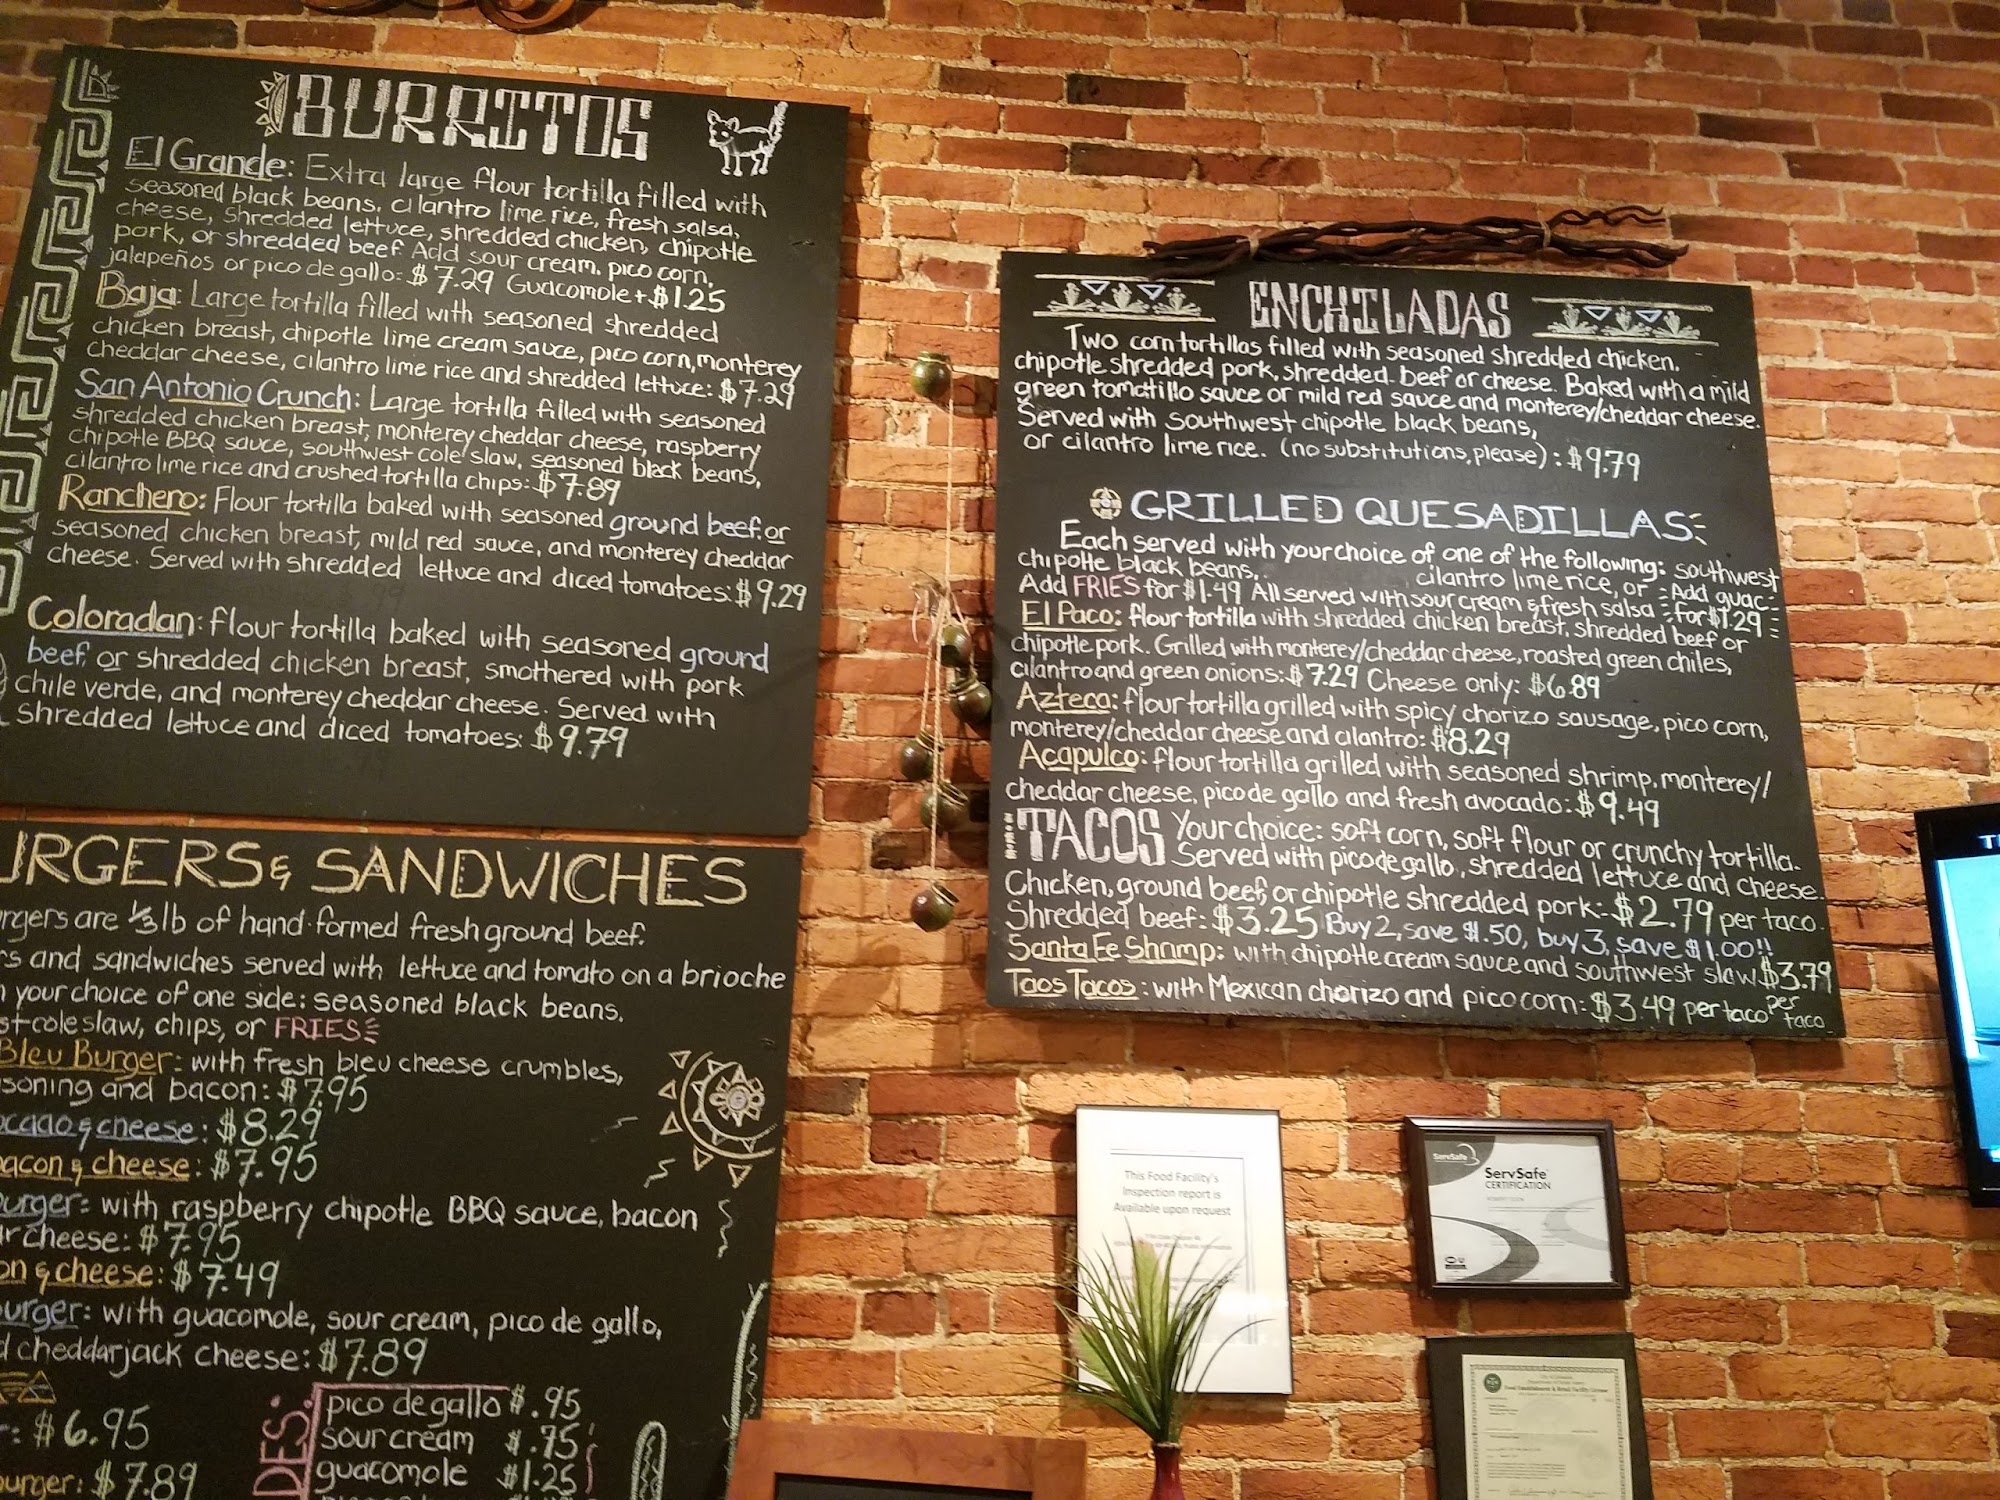 BURRITOS
El Grande: Extra large flour tortilla filled with
seasoned black beans, cilantro lime rice, fresh salsa,
cheese, shredded lettuce, shredded chicken, chipotle
pork, or shredded beef. Add sour cream, pico corn,
jalapeños or pico de gallo: $7.29 Guacomole + $1.25
Baja: Large tortilla filled with seasoned shredded
chicken breast, chipotle lime cream sauce, pico corn, monterey
cheddar cheese, cilantro lime rice and shredded lettuce: $7.29
San Antonio Crunch: Large tortilla filled with seasoned
shredded chicken breast, monterey cheddar cheese, raspberry
chipotle BBQ sauce, southwest cole slaw, seasoned black beans,
cilantro lime rice and crushed tortilla chips: $7.89
Ranchero: Flour tortilla baked with seasoned ground beef, or
seasoned chicken breast, mild red sauce, and monterey cheddar
cheese. Served with shredded lettuce and diced tomatoes: $9.29
Coloradan: flour tortilla baked with seasoned ground
beef, or shredded chicken breast, smothered with pork
chile verde, and monterey cheddar cheese. Served with
shredded lettuce and diced tomatoes: $9.79
URGERS & SANDWICHES
rgers are 1/3 lb of hand-formed fresh ground beef.
rs and sandwiches served with lettuce and tomato on a brioche
h your choice of one side: seasoned black beans,
st cole slaw, chips, or FRIES
Bleu Burger: with fresh bleu cheese crumbles,
soning and bacon: $7.95
ocado & cheese: $8.29
acon & cheese: $7.95
burger: with raspberry chipotle BBQ sauce, bacon
ar cheese: $7.95
on & cheese: $7.49
burger: with guacomole, sour cream, pico de gallo,
d cheddarjack cheese: $7.89
r: $6.95
burger: $7.89
DES:
pico de gallo $.95
sour cream $.75
guacomole $1.25
ENCHILADAS
Two corn tortillas filled with seasoned shredded chicken,
chipotle shredded pork, shredded beef or cheese. Baked with a mild
green tomatillo sauce or mild red sauce and monterey/cheddar cheese.
Served with Southwest chipotle black beans,
or cilantro lime rice. (no substitutions, please): $9.79
GRILLED QUESADILLAS
Each served with your choice of one of the following: southwest
chipotle black beans, cilantro lime rice, or
Add FRIES for $1.49 All served with sour cream & fresh salsa
Add guac
for $1.29
El Paco: flour tortilla with shredded chicken breast, shredded beef or
chipotle pork. Grilled with monterey/cheddar cheese, roasted green chiles,
cilantro and green onions: $7.29 Cheese only: $6.89
Azteca: flour tortilla grilled with spicy chorizo sausage, pico corn,
monterey/cheddar cheese and cilantro: $8.29
Acapulco: flour tortilla grilled with seasoned shrimp, monterey/
cheddar cheese, pico de gallo and fresh avocado: $9.49
TACOS Your choice: soft corn, soft flour or crunchy tortilla.
Served with pico de gallo, shredded lettuce and cheese.
Chicken, ground beef, or chipotle shredded pork: $2.79 per taco.
Shredded beef: $3.25 Buy 2, save $.50, buy 3, save $1.00!!
Santa Fe Shrimp: with chipotle cream sauce and southwest slaw $3.79
per taco
Taos Tacos: with Mexican chorizo and pico corn: $3.49 per taco
This Food Facility's
Inspection report is
Available upon request
ServSafe
ServSafe
CERTIFICATION